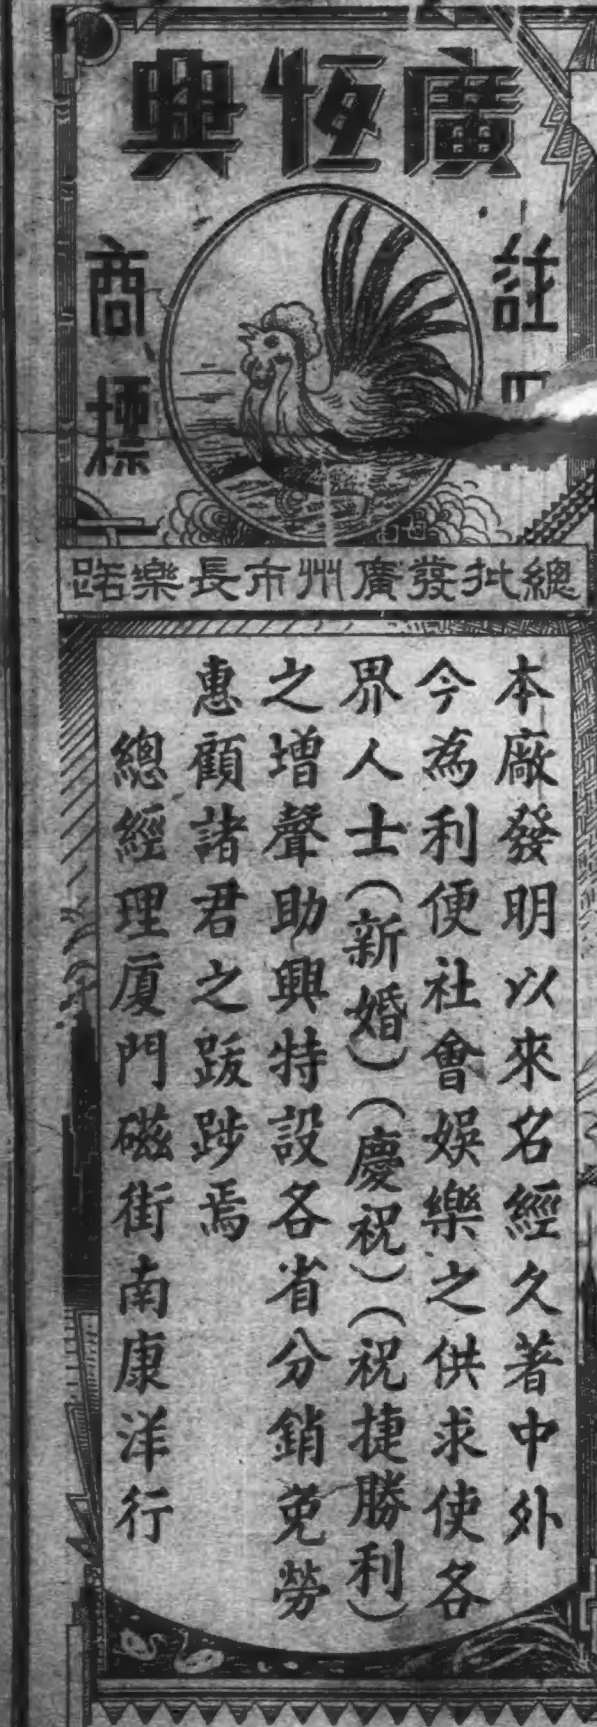 廣恆興
註
商標
總批發廣州市長樂路
本廠發明以來名經久著中外
今為利便社會娛樂之供求使各
界人士（新婚）（慶祝）（祝捷勝利）
之增聲助興特設各省分銷免勞
惠顧諸君之跋踄焉
總經理厦門磁街南康洋行